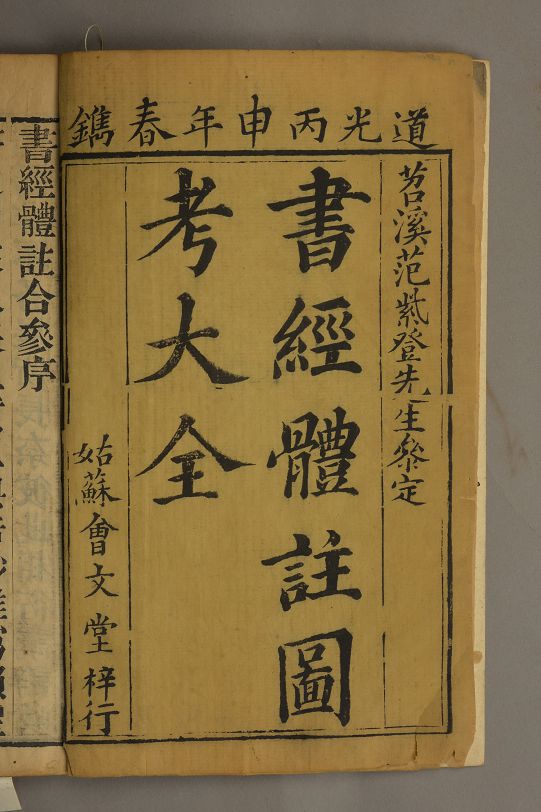 道光丙申年春鐫
苕溪范紫登先生叅定
書經體註圖
考大全
姑蘇會文堂梓行
書經體註合叅序